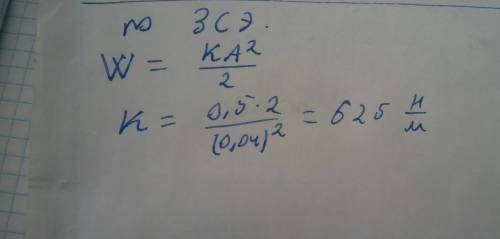 по ЗСЭ.
W = KA²/2
K = 0,5·2/(0,04)² = 625 Н/м